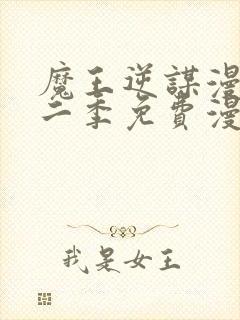 魔王逆謀漫
二季免費漫
我是女王